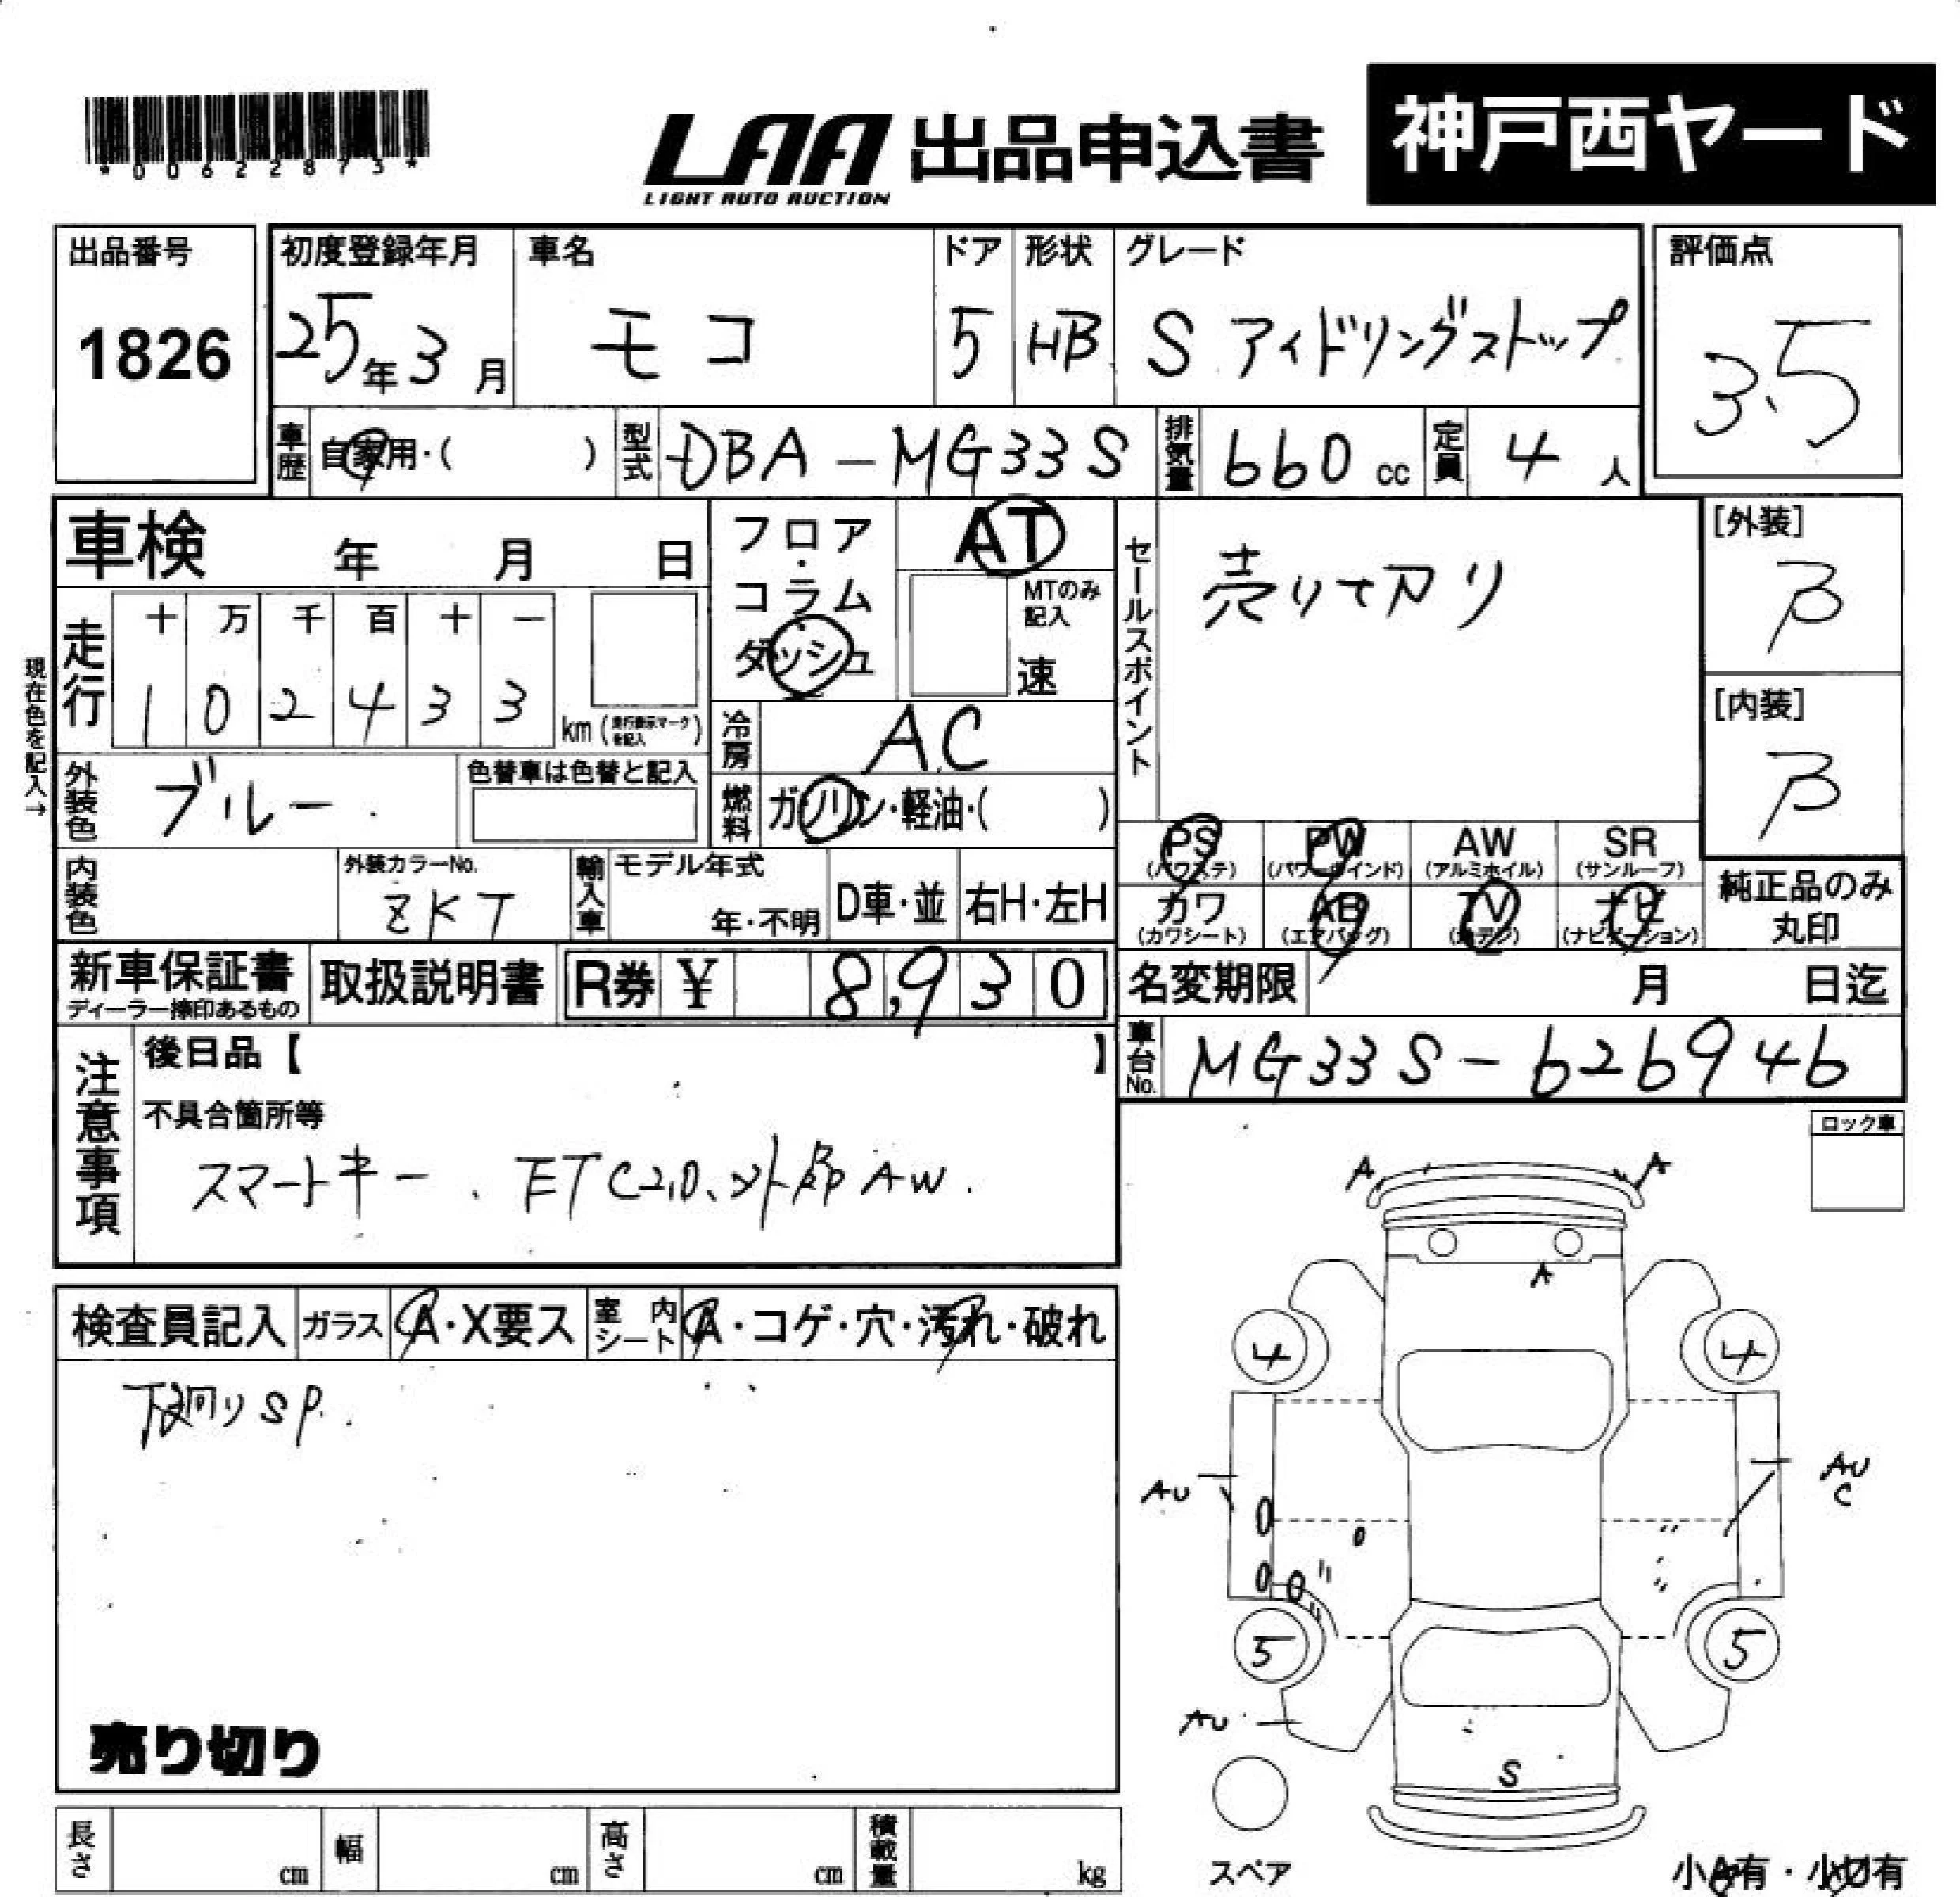 *00622873*
LAA 出品申込書 神戸西ヤード
LIGHT AUTO AUCTION
出品番号 初度登録年月 車名 ドア 形状 グレード 評価点
1826 25年3月 モコ 5 HB S アイドリングストップ 3.5
車歴 自家用・( ) 型式 DBA-MG33S 排気量 660 cc 定員 4 人
車検 年 月 日
フロア・コラム・ダッシュ
AT
MTのみ記入
速
セールスポイント
売り切り
[外装]
B
[内装]
B
現在色を記入→
走行 十 万 千 百 十 一
1 0 2 4 3 3 km (走行表示マークを記入)
冷房 AC
外装色 ブルー 色替車は色替と記入
燃料 ガソリン・軽油・( )
内装色 外装カラーNo. ZKT
輸入車 モデル年式 年・不明 D車・並 右H・左H
PS (パワステ) PW (パワーウインド) AW (アルミホイル) SR (サンルーフ)
カワ (カワシート) AB (エアバッグ) TV (地デジ) ナビ (ナビゲーション)
純正品のみ
丸印
新車保証書 取扱説明書 R券 ¥ 8,930
ディーラー捺印あるもの
名変期限 月 日迄
車台No. MG33S-626946
注意事項
後日品【 】
不具合箇所等
スマートキー、ETC2.0、ソト部AW.
ロック車
検査員記入 ガラス A・X要ス 室内シート A・コゲ・穴・汚れ・破れ
下廻りSP.
売り切り
A A
A
4 4
AU AU
C
5 5
AU
S
スペア
小A有・小U有
長さ cm 幅 cm 高さ cm 積載量 kg